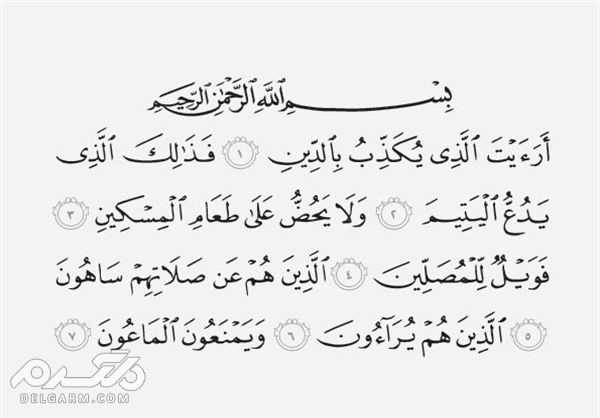 بِسْمِ ٱللَّهِ ٱلرَّحْمَٰنِ ٱلرَّحِيمِ
أَرَءَيْتَ ٱلَّذِى يُكَذِّبُ بِٱلدِّينِ ١ فَذَٰلِكَ ٱلَّذِى
يَدُعُّ ٱلْيَتِيمَ ٢ وَلَا يَحُضُّ عَلَىٰ طَعَامِ ٱلْمِسْكِينِ ٣
فَوَيْلٌ لِّلْمُصَلِّينَ ٤ ٱلَّذِينَ هُمْ عَن صَلَاتِهِمْ سَاهُونَ
٥ ٱلَّذِينَ هُمْ يُرَآءُونَ ٦ وَيَمْنَعُونَ ٱلْمَاعُونَ ٧
دلگرم
DELGARM.COM